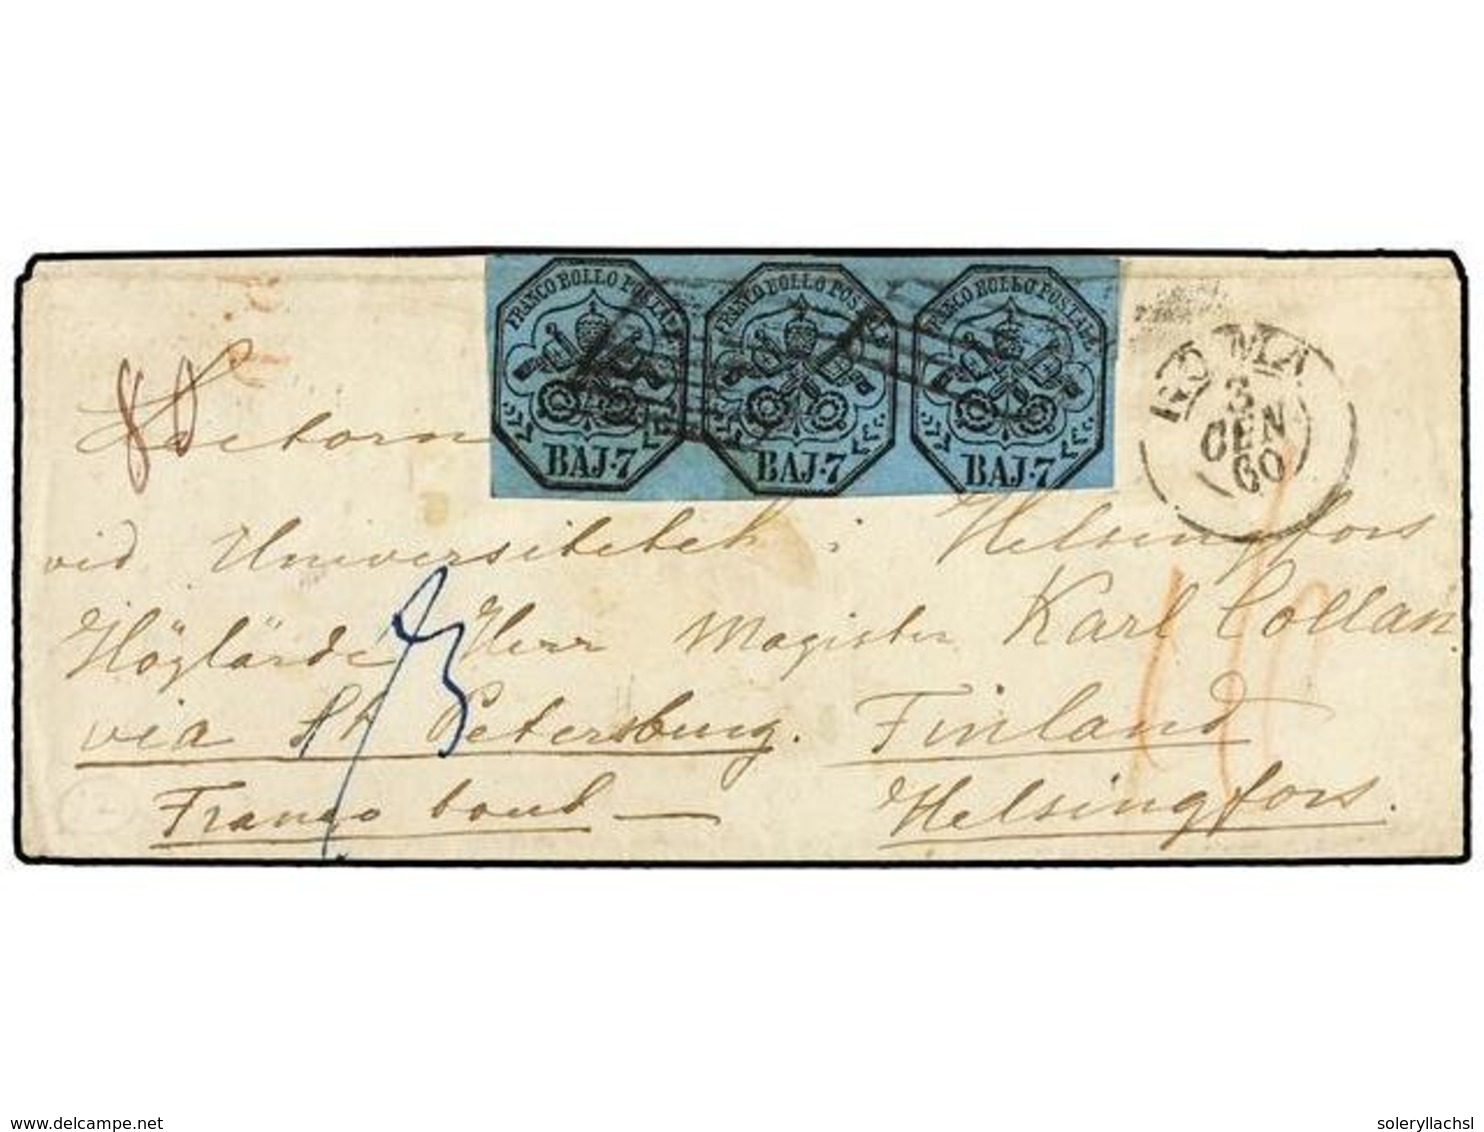 FRANCO BOLLO POSTALE FRANCO BOLLO POSTALE FRANCO BOLLO POSTALE
BAJ·7 BAJ·7 BAJ·7
ROMA
3
GEN
60
80
Lectorn
vid Universitetet i Helsingfors
Höglärde Herr Magister Karl Collan
via St Petersburg. Finland
Franco Helsingfors.
www.delcampe.net
soleryllachsl